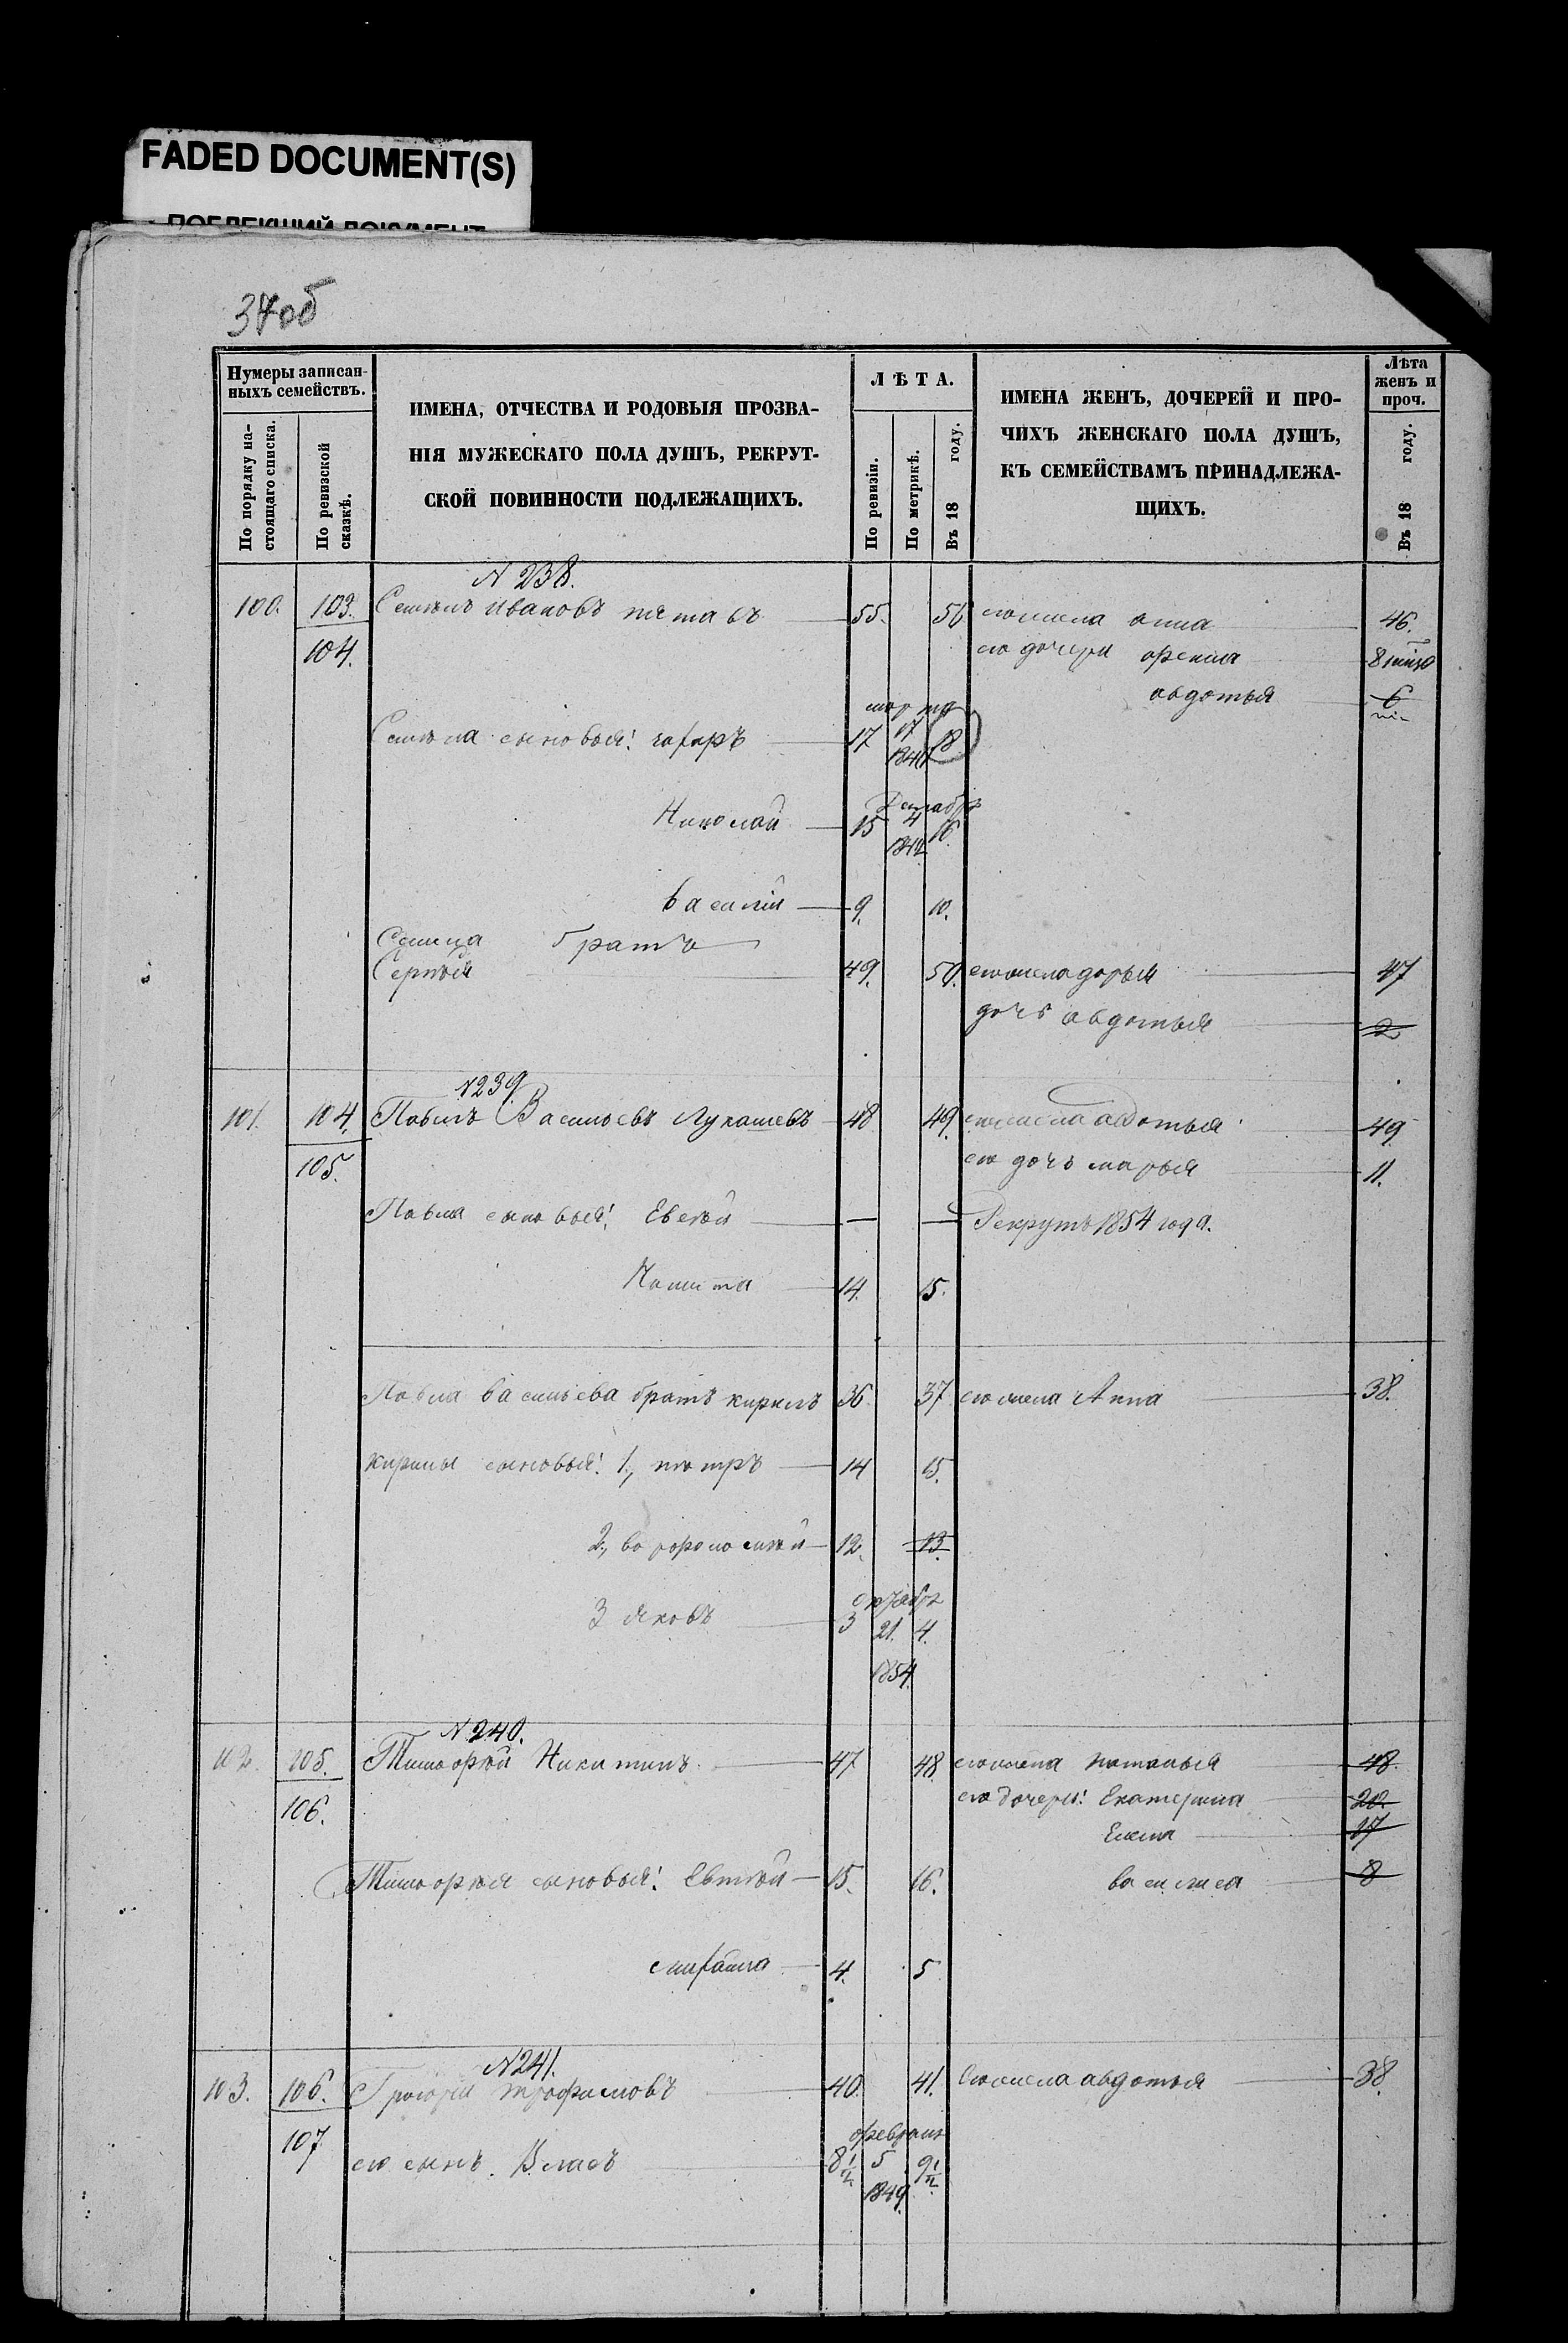 FADED DOCUMENT(S)
ПОБЛЕКШИЙ ДОКУМЕНТ
34об
Нумеры записан-
ныхъ семействъ.
По порядку на-
стоящаго списка.
По ревизской
сказкѣ.
ИМЕНА, ОТЧЕСТВА И РОДОВЫЯ ПРОЗВА-
НІЯ МУЖЕСКАГО ПОЛА ДУШЪ, РЕКРУТ-
СКОЙ ПОВИННОСТИ ПОДЛЕЖАЩИХЪ.
ЛѢТА.
По ревизіи.
По метрикѣ.
Въ 18 году.
ИМЕНА ЖЕНЪ, ДОЧЕРЕЙ И ПРО-
ЧИХЪ ЖЕНСКАГО ПОЛА ДУШЪ,
КЪ СЕМЕЙСТВАМЪ ПРИНАДЛЕЖА-
ЩИХЪ.
Лѣта
женъ и
проч.
Въ 18 году.
N 238.
100. 103. Ивановъ 55. 56 анна 46.
104. его дочери 8
авдотья 6
сыновья: 17 17 1840 18
Николай 15 4 1842 16.
василій 9. 10.
братъ
Сергѣй 49. 50. дарья 47
дочь авдотья 2
N 239
101. 104. Павелъ Васильевъ Лукашевъ 48 49. авдотья 49
105. его дочь марья 11.
Павла сыновья: Евсѣй — — Рекрутъ 1854 года.
Никита 14. 15.
Павла васильева братъ кирилъ 36. 37 его жена Анна 38.
кирилы сыновья: 1, петръ 14 15.
2, варфоломѣй 12. 13.
октября
3 яковъ 3 21. 4.
1854
N 240.
102. 105. Тимофѣй Никитинъ 47 48. его жена наталья 48.
106. его дочери: Екатерина 20.
Елена 17
Тимофѣя сыновья: Евтѣй 15. 16. василиса 8
4. 5
N 241.
103. 106. Григорій трофимовъ 40. 41. Его жена авдотья 38.
февраля
107 его сынъ Власъ 8 1/2 5 9 1/2
1849.